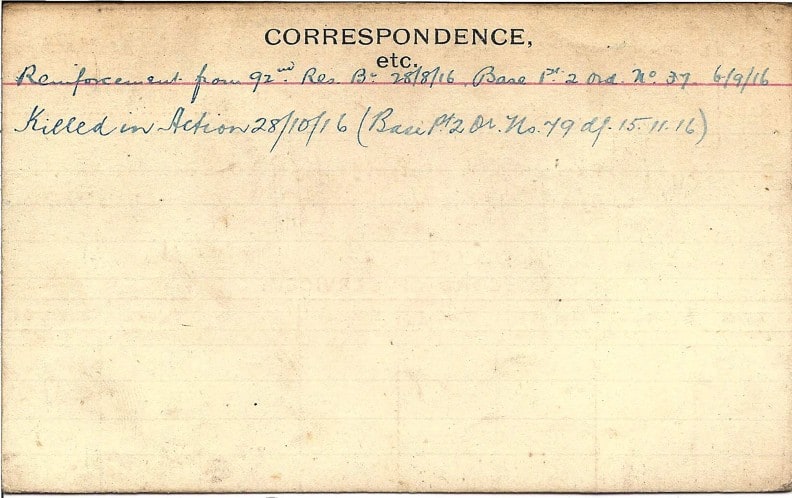 CORRESPONDENCE,
etc.
Reinforcement from 92nd Res. Bn 28/8/16 Base Pt. 2 Ord. No. 37 6/9/16
Killed in Action 28/10/16 (Base Pt 2 Or. No. 79 df. 15.11.16)